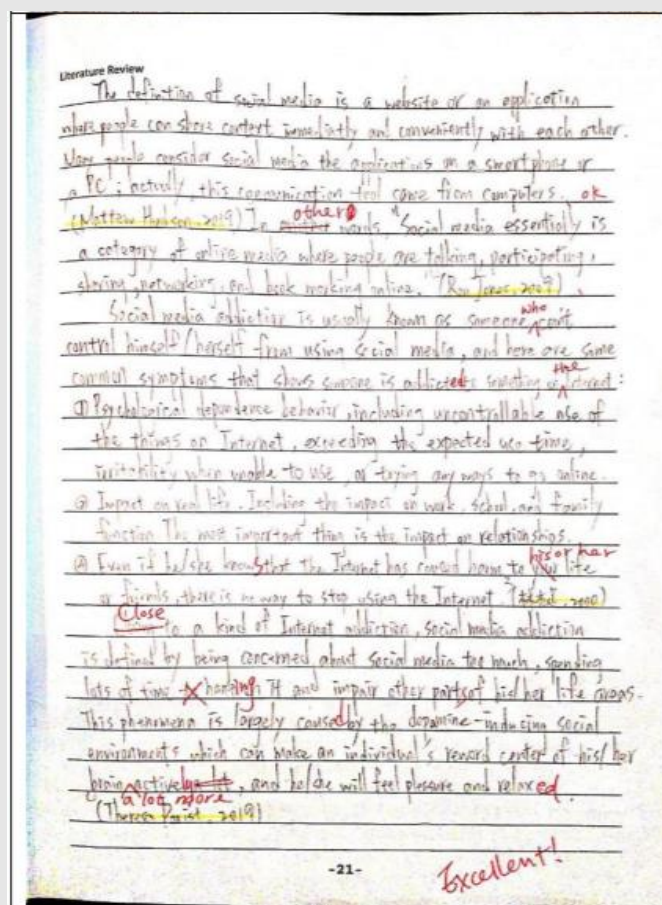 Literature Review
The definition of social media is a website or an application
where people can share content immediatly and conveniently with each other.
Many people consider social media the applications on a smartphone or
a PC; actually, this communication tool came from computers. ok
(Mattew Hudson, 2019) In other words, "Social media essentially is
a category of online media where people are talking, participating,
sharing, networking, and book marking online." (Ron Jones, 2009).
Social media addiction is usually known as someone who can't
control himself/herself from using social media, and here are some
common symptoms that shows someone is addicted to something on the Internet:
① Psychological dependence behavior, including uncontrollable use of
the things on Internet, exceeding the expected use time,
irritability when unable to use, or trying any ways to go online.
② Impact on real life. Including the impact on work, school, and family
function The most important thing is the impact on relationships.
Even if he/she knows that the Internet has caused harm to his or her life
or friends, there is no way to stop using the Internet. 2000)
Close to a kind of Internet addiction, social media addiction
is defined by being concerned about social media too much, spending
lots of time handing it and impair other parts of his/her life areas.
This phenomena is largely caused by the dopamine-inducing social
environments which can make an individual's reward center of his/her
brain active a lot more, and he/she will feel pleasure and relaxed.
(Theresa 2019)
-21-
Excellent!